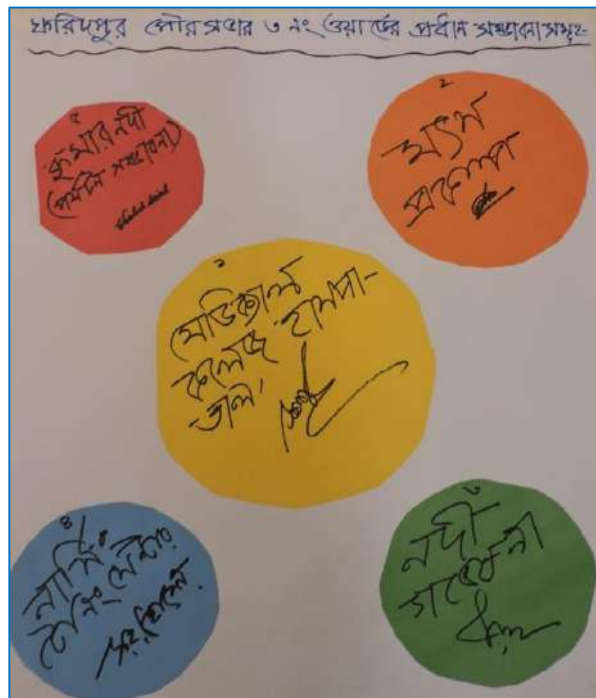 ফরিদপুর পৌরসভার ৩ নং ওয়ার্ডের প্রধান সম্ভাবনাসমূহঃ
৫
কুমার নদী
(পর্যটন সম্ভাবনা)
২
মৎস
প্রকল্প
১
মেডিক্যাল
কলেজ হাসপা-
তাল
৪
নার্সিং
ট্রেনিং সেন্টার
৩
নদী
গবেষনা